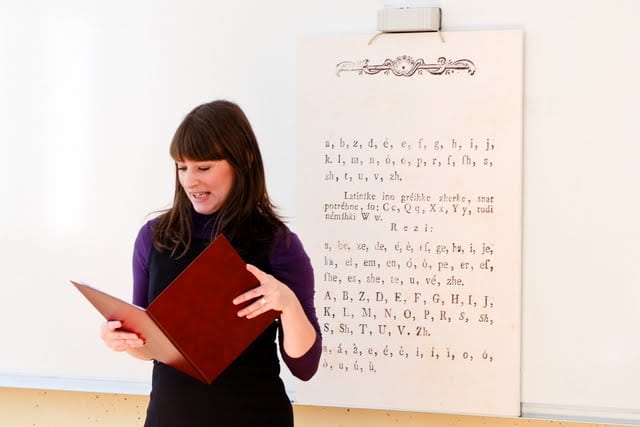 a, b, z, d, é, e, f, g, h, i, j,
k. l, m, n, ó, o, p, r, ſ, ſh, s,
sh, t, u, v, zh.
Latinſke ino gréihke zherke, snat
potrébne, ſo; Cc, Qq, Xx, Yy, tudi
némſhki W w.
Rezi:
a, be, ze, de, é, è, eſ, ge, ha, i, je,
ka, el, em, en, ó, ò, pe, er, eſ,
ſhe, es, she, te, u, vé, zhe.
A, B, Z, D, E, F, G, H, I, J,
K, L, M, N, O, P, R, S, Sh,
S, Sh, T, U, V. Zh.
á, à, e, é, è, i, í, ì, o, ó,
u, ú, ù.